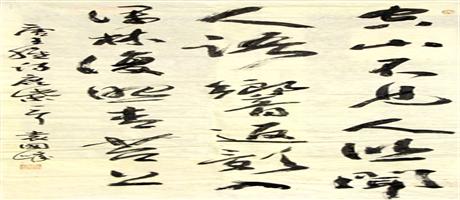 空山不見人但聞
人語響返影入
深林復照青苔上
唐